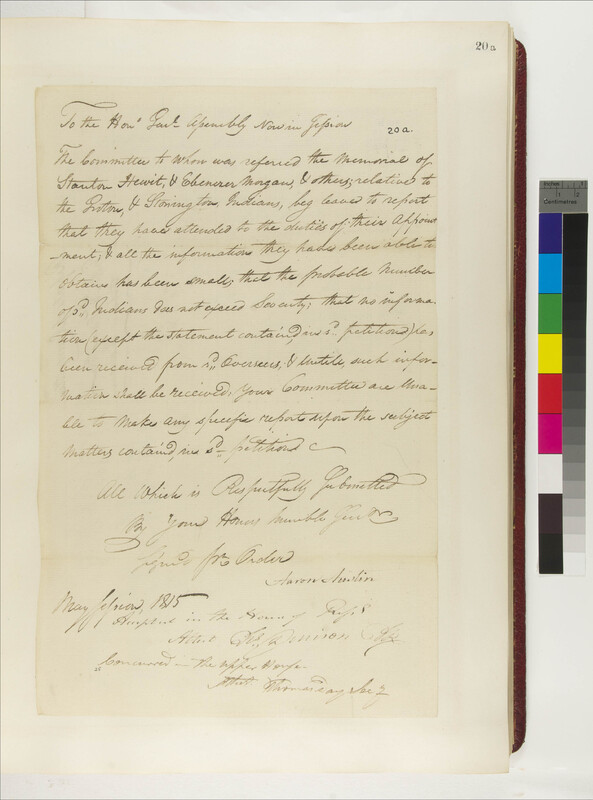 20a
To the Hon.l Genl. Assembly Now in Session
20a.
The Committee to Whom was referred the Memorial of
Stanton Hewit, & Ebenezer Morgan, & others; relative to
the Groton, & Stonington Indians, beg leave to report
that they have attended to the duties of their Appoint
-ment, & all the information they have been able to
obtain has been small; that the probable Number
of sd. Indians does not exceed Seventy; that no informa-
tion (except the statement containd, in sd. petition) has
been received from sd. Overseers, & Untill such infor-
mation shall be received, Your Committee are Una-
ble to make any specific report upon the subject
matters containd, in sd. petition
All Which is Respectfully Submitted
By Your Honors humble Servts
Signed pr. Order
Aaron Austin
May Session, 1815
Accepted in the House of Reps.
Attest Denison Clk
Concurred — The Upper House
Attest Thomas Day Secy
Inches 1
1 2
Centimetres